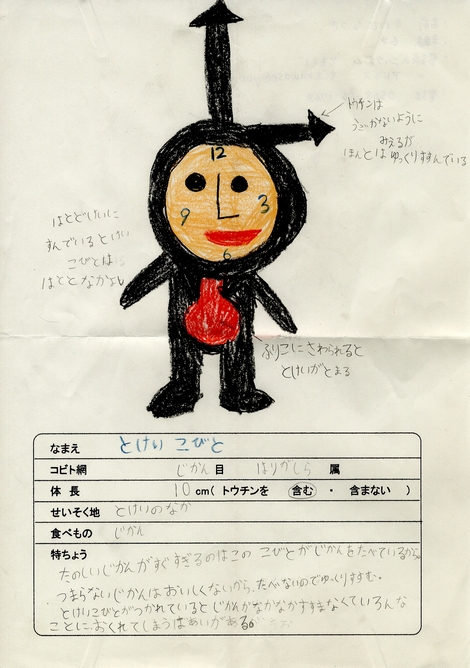 トウチンは
うごかないように
みえるが
ほんとはゆっくりすすんでいる
12
3
9
6
はとどけいに
すんでいるとけい
こびとは
はととなかよし
ふりこにさわられると
とけいがとまる
なまえ とけい こびと
コビト網 じかん 目 はりがしら 属
体 長 10 cm( トウチンを 含む ・ 含まない )
せいそく地 とけいのなか
食べもの じかん
特ちょう
たのしいじかんがすぐすぎるのはこのこびとがじかんをたべているから。
つまらないじかんはおいしくないから、たべないのでゆっくりすすむ。
とけいこびとがつかれているとじかんがなかなかすすまなくていろんな
ことにおくれてしまうばあいがある。